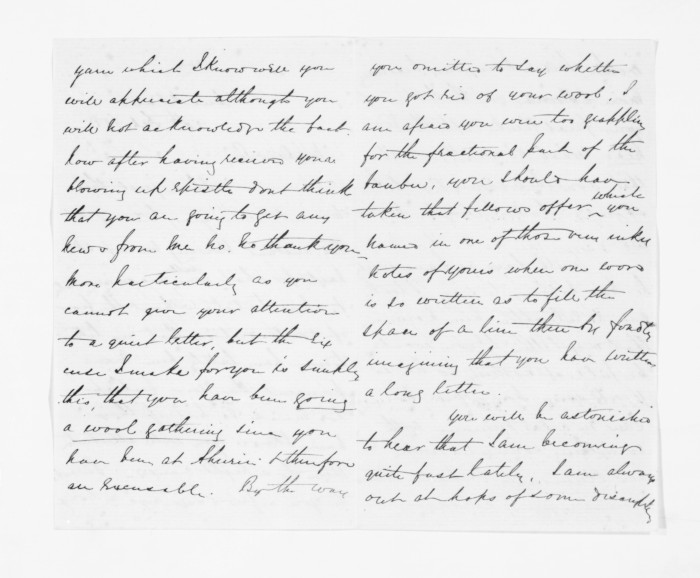 yarn which I know well you
will appreciate although you
will not acknowledge the fact.
Now after having received your
blowing up epistle dont think
that you are going to get any
news from me no. no thank you
more particularly as you
cannot give your attention
to a quiet letter, but the ex
cuse I make for you is simply
this, that you have been going
a wool gathering since you
have been at & therefore
are excusable. By the way
you omitted to say whether
you got rid of your wool. I
am afraid you were too grappling
for the fractional part of the
you should have
taken that fellows offer which you
named in one of those very inkey
notes of yours when one word
is so written as to fill the
space of a line there by fondly
imagining that you have written
a long letter.
You will be astonished
to hear that I am becoming
quite fast lately. I am always
out at hops of some description